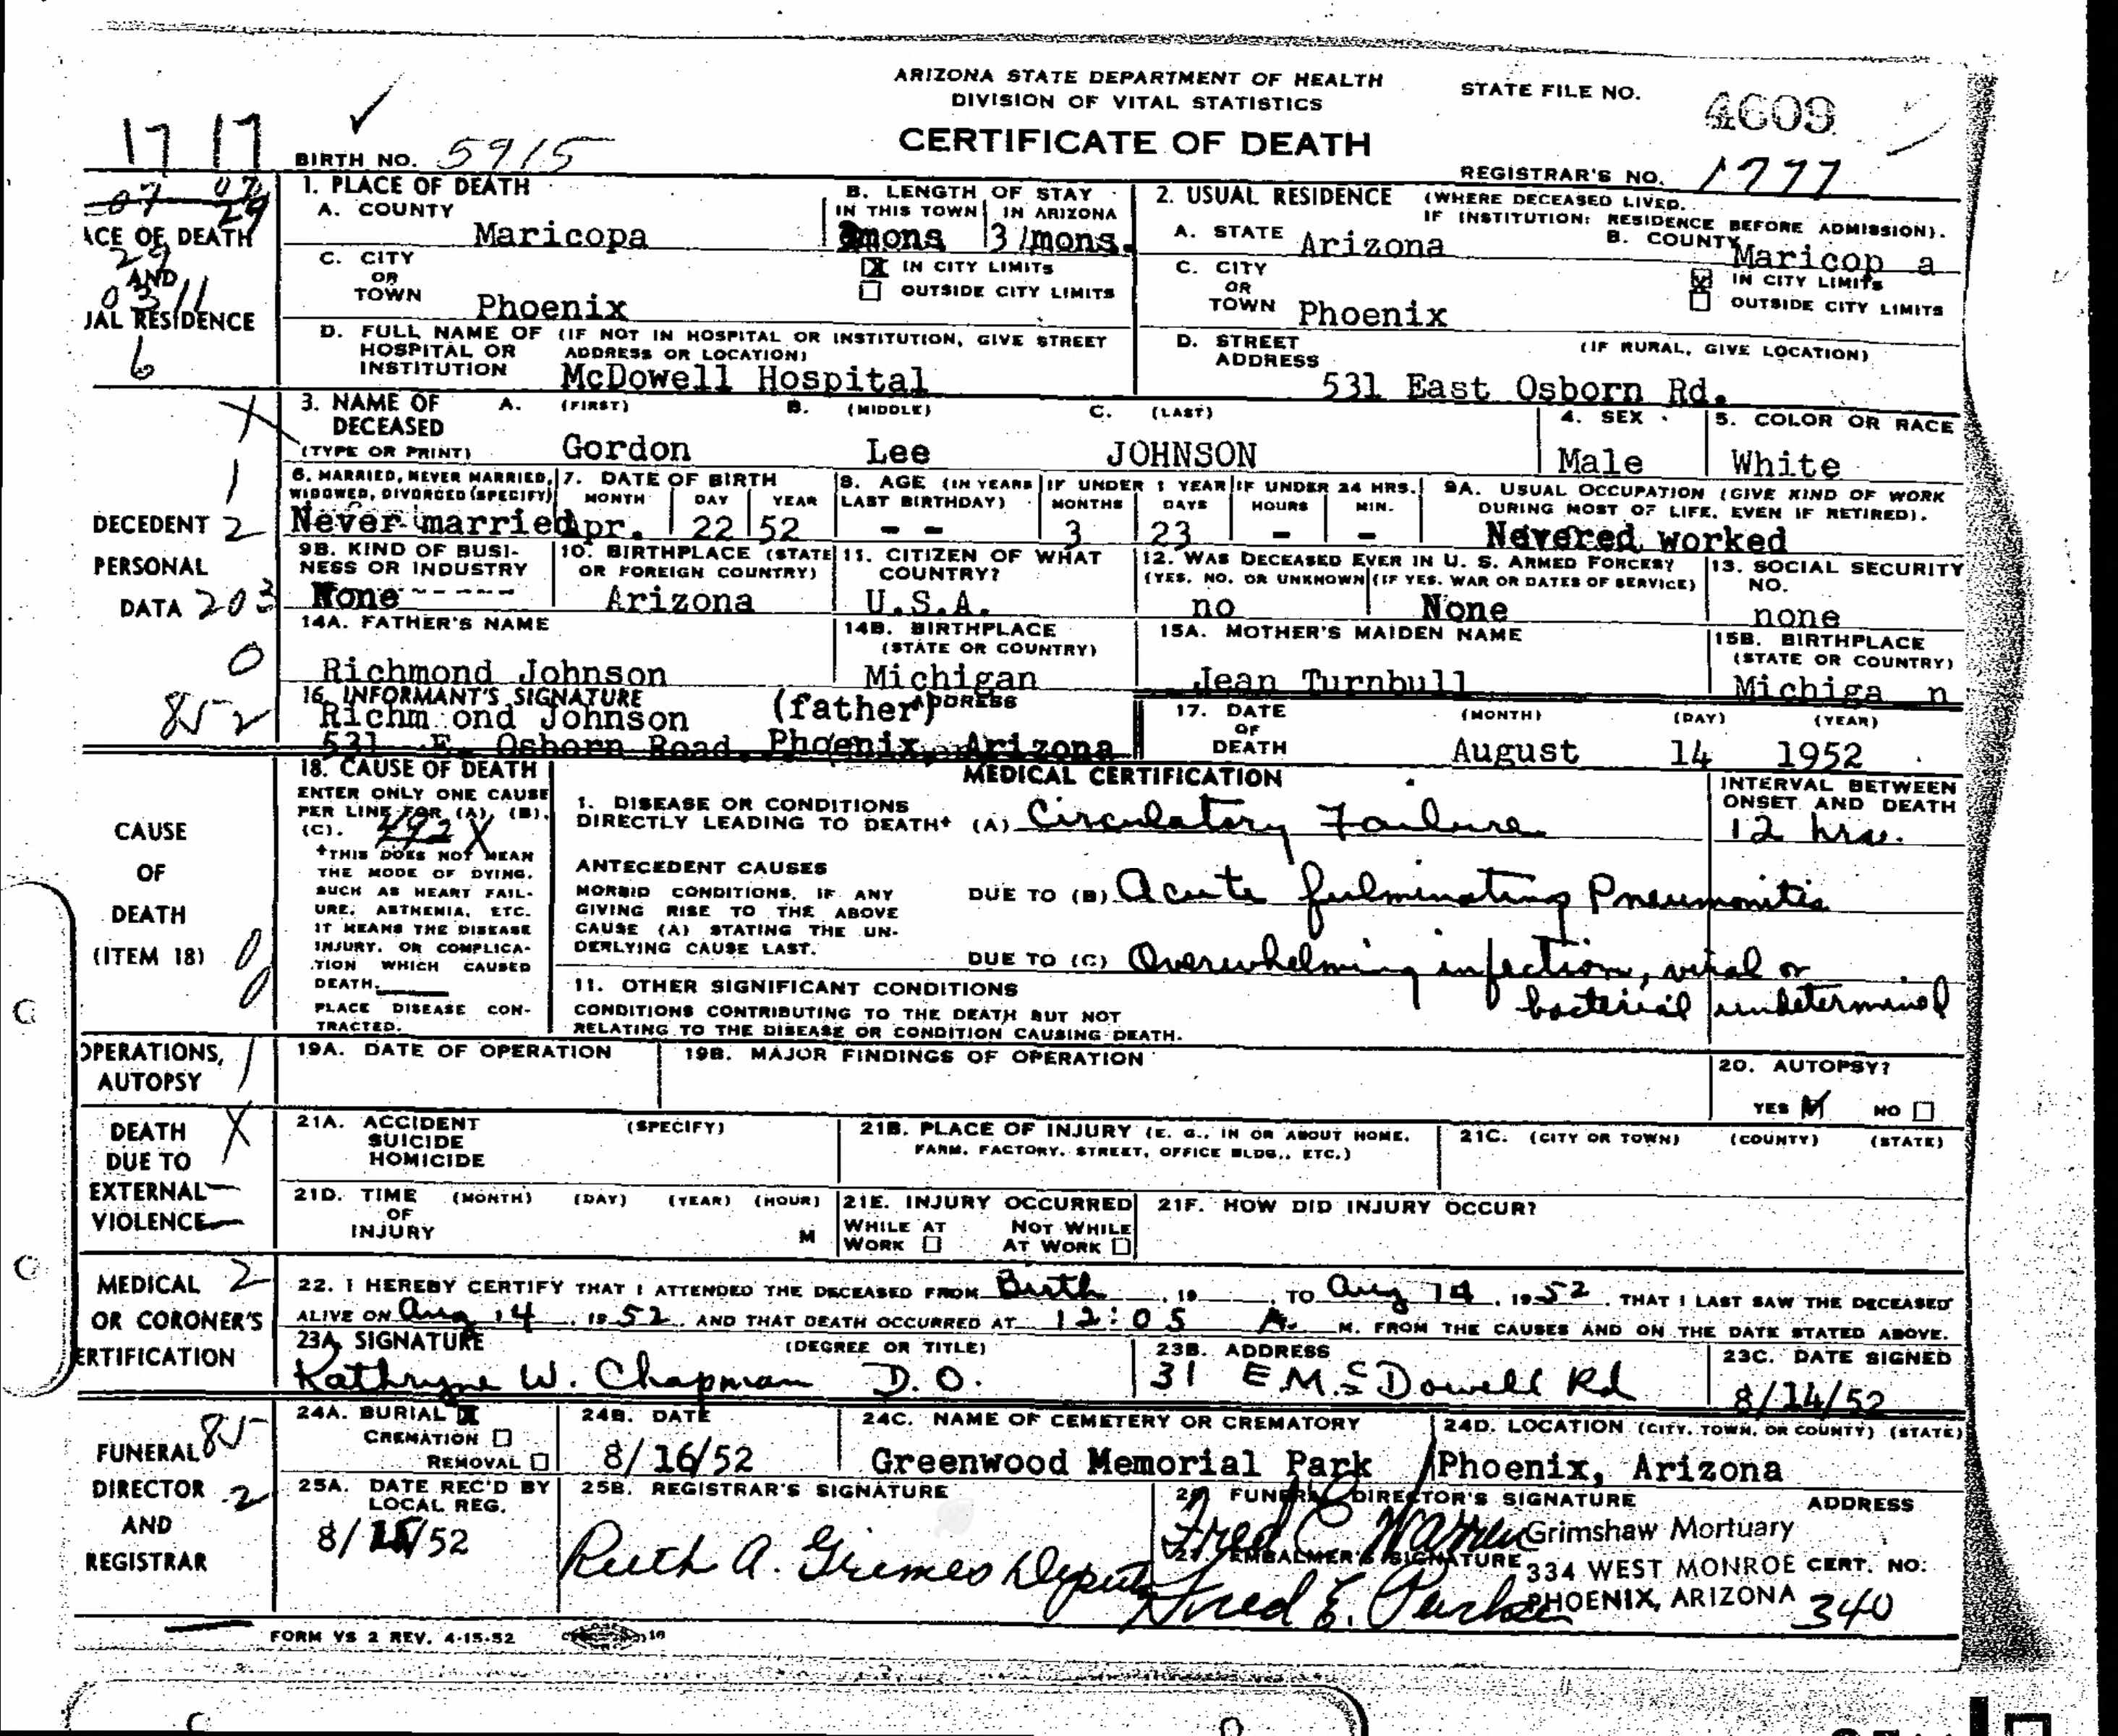 ARIZONA STATE DEPARTMENT OF HEALTH
DIVISION OF VITAL STATISTICS
CERTIFICATE OF DEATH
STATE FILE NO. 4609
REGISTRAR'S NO. 1777
17 17
BIRTH NO. 5915
07 07
29
ACE OF DEATH
29
AND
0311
JAL RESIDENCE
6
1. PLACE OF DEATH
A. COUNTY
Maricopa
B. LENGTH OF STAY
IN THIS TOWN IN ARIZONA
3mons 3/mons.
2. USUAL RESIDENCE (WHERE DECEASED LIVED.
IF INSTITUTION: RESIDENCE BEFORE ADMISSION).
A. STATE Arizona
B. COUNTY Maricop a
C. CITY OR TOWN
Phoenix
IN CITY LIMITS
OUTSIDE CITY LIMITS
C. CITY OR TOWN Phoenix
IN CITY LIMITS
OUTSIDE CITY LIMITS
D. FULL NAME OF HOSPITAL OR INSTITUTION
(IF NOT IN HOSPITAL OR INSTITUTION, GIVE STREET ADDRESS OR LOCATION)
McDowell Hospital
D. STREET ADDRESS (IF RURAL, GIVE LOCATION)
531 East Osborn Rd.
DECEDENT 2
PERSONAL
DATA 203
0
852
X
1
3. NAME OF DECEASED
(TYPE OR PRINT)
A. (FIRST) B. (MIDDLE) C. (LAST)
Gordon Lee JOHNSON
4. SEX
Male
5. COLOR OR RACE
White
6. MARRIED, NEVER MARRIED, WIDOWED, DIVORCED (SPECIFY)
Never married
7. DATE OF BIRTH
MONTH DAY YEAR
Apr. 22 52
8. AGE (IN YEARS LAST BIRTHDAY)
- -
IF UNDER 1 YEAR
MONTHS DAYS
3 23
IF UNDER 24 HRS.
HOURS MIN.
- -
9A. USUAL OCCUPATION (GIVE KIND OF WORK DURING MOST OF LIFE, EVEN IF RETIRED).
Nevered worked
9B. KIND OF BUSINESS OR INDUSTRY
None - - - - - -
10. BIRTHPLACE (STATE OR FOREIGN COUNTRY)
Arizona
11. CITIZEN OF WHAT COUNTRY?
U.S.A.
12. WAS DECEASED EVER IN U. S. ARMED FORCES?
(YES, NO, OR UNKNOWN) (IF YES, WAR OR DATES OF SERVICE)
no None
13. SOCIAL SECURITY NO.
none
14A. FATHER'S NAME
Richmond Johnson
14B. BIRTHPLACE (STATE OR COUNTRY)
Michigan
15A. MOTHER'S MAIDEN NAME
Jean Turnbull
15B. BIRTHPLACE (STATE OR COUNTRY)
Michiga n
16. INFORMANT'S SIGNATURE ADDRESS
Richm ond Johnson (father)
531 E. Osborn Road, Phoenix, Arizona
17. DATE OF DEATH
(MONTH) (DAY) (YEAR)
August 14 1952
CAUSE
OF
DEATH
(ITEM 18)
0
0
18. CAUSE OF DEATH
ENTER ONLY ONE CAUSE
PER LINE FOR (A), (B),
(C). 492X
*THIS DOES NOT MEAN
THE MODE OF DYING,
SUCH AS HEART FAIL-
URE, ASTHENIA, ETC.
IT MEANS THE DISEASE
INJURY, OR COMPLICA-
TION WHICH CAUSED
DEATH.
PLACE DISEASE CON-
TRACTED.
MEDICAL CERTIFICATION
INTERVAL BETWEEN ONSET AND DEATH
1. DISEASE OR CONDITIONS
DIRECTLY LEADING TO DEATH* (A) Circulatory Failure
12 hrs.
ANTECEDENT CAUSES
MORBID CONDITIONS, IF ANY
GIVING RISE TO THE ABOVE
CAUSE (A) STATING THE UN-
DERLYING CAUSE LAST.
DUE TO (B) Acute fulminating Pneumonitis
DUE TO (C) Overwhelming infection, viral or
bacterial undetermined
11. OTHER SIGNIFICANT CONDITIONS
CONDITIONS CONTRIBUTING TO THE DEATH BUT NOT
RELATING TO THE DISEASE OR CONDITION CAUSING DEATH.
OPERATIONS,
AUTOPSY
1
19A. DATE OF OPERATION
19B. MAJOR FINDINGS OF OPERATION
20. AUTOPSY?
YES NO
DEATH X
DUE TO
EXTERNAL
VIOLENCE
21A. ACCIDENT (SPECIFY)
SUICIDE
HOMICIDE
21B. PLACE OF INJURY (E. G., IN OR ABOUT HOME,
FARM, FACTORY, STREET, OFFICE BLDG., ETC.)
21C. (CITY OR TOWN) (COUNTY) (STATE)
21D. TIME OF INJURY (MONTH) (DAY) (YEAR) (HOUR)
M
21E. INJURY OCCURRED
WHILE AT WORK NOT WHILE AT WORK
21F. HOW DID INJURY OCCUR?
MEDICAL 2
OR CORONER'S
ERTIFICATION
22. I HEREBY CERTIFY THAT I ATTENDED THE DECEASED FROM Birth, 19 , TO Aug 14, 1952, THAT I LAST SAW THE DECEASED
ALIVE ON Aug 14, 1952, AND THAT DEATH OCCURRED AT 12:05 A. M. FROM THE CAUSES AND ON THE DATE STATED ABOVE.
23A. SIGNATURE (DEGREE OR TITLE)
Kathryne W. Chapman D.O.
23B. ADDRESS
31 E McDowell Rd
23C. DATE SIGNED
8/14/52
FUNERAL 85
DIRECTOR 2
AND
REGISTRAR
24A. BURIAL
CREMATION
REMOVAL
24B. DATE
8/16/52
24C. NAME OF CEMETERY OR CREMATORY
Greenwood Memorial Park
24D. LOCATION (CITY, TOWN, OR COUNTY) (STATE)
Phoenix, Arizona
25A. DATE REC'D BY LOCAL REG.
8/15/52
25B. REGISTRAR'S SIGNATURE
Ruth A. Grimes Deputy
26. FUNERAL DIRECTOR'S SIGNATURE ADDRESS
Fred C Warren
Grimshaw Mortuary
27. EMBALMER'S SIGNATURE
334 WEST MONROE CERT. NO.
Fred E. Parker
PHOENIX, ARIZONA 340
FORM VS 2 REV. 4-15-52